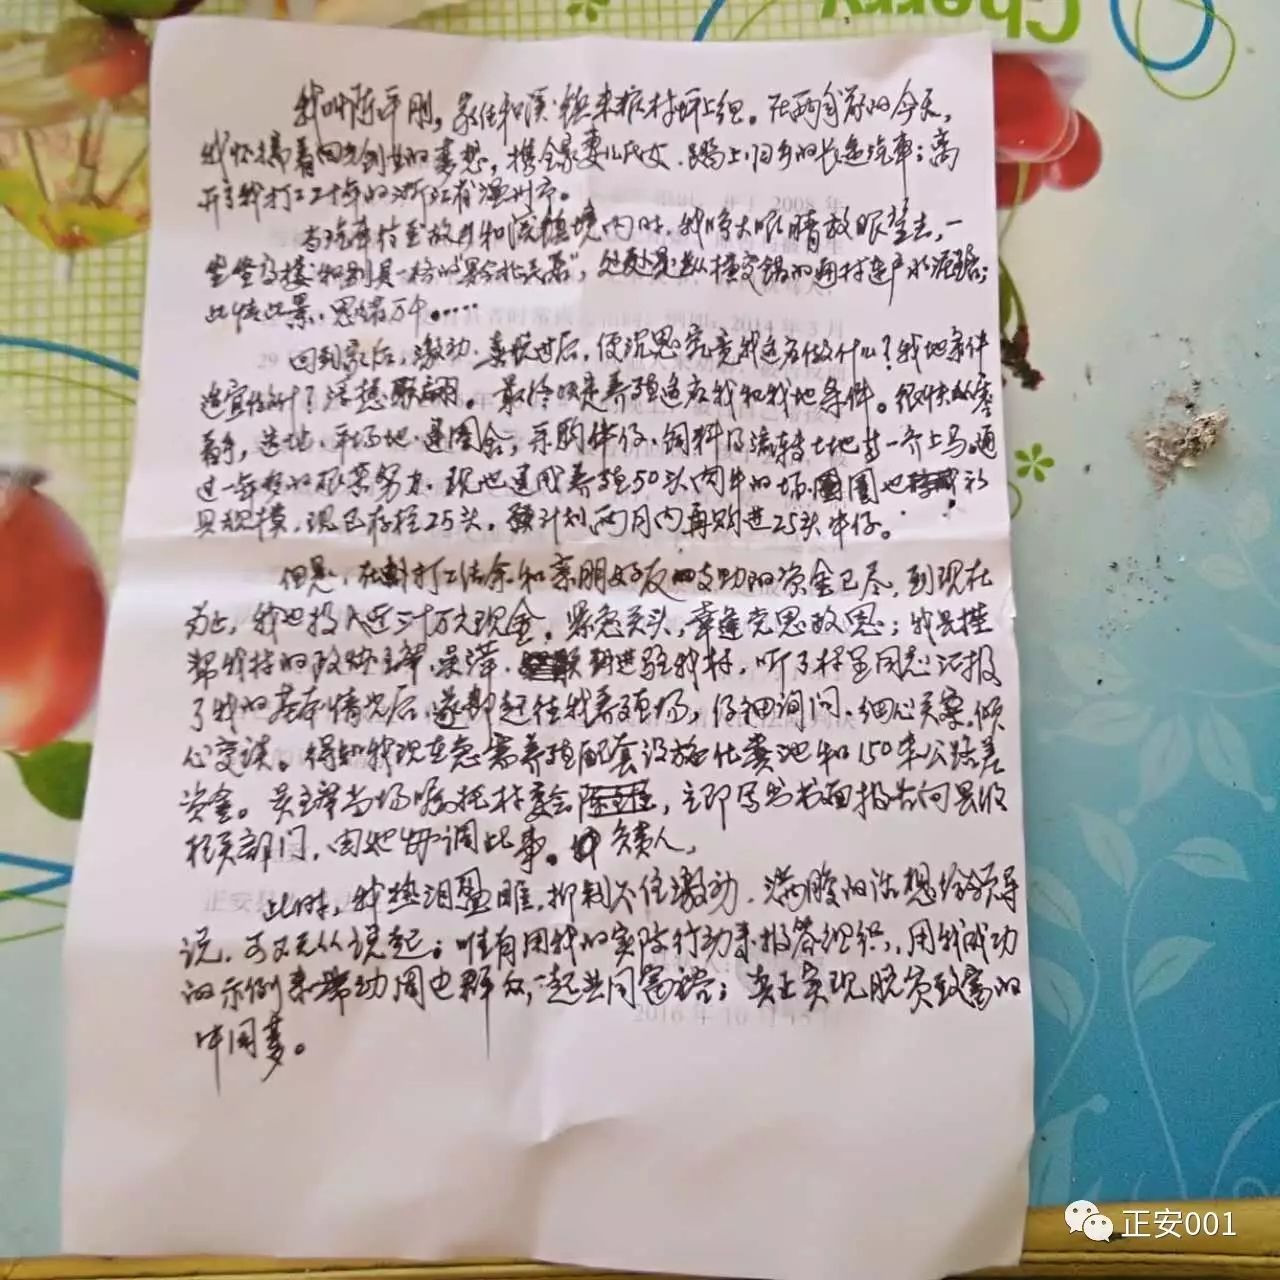 Cherry
我叫陈平刚，家住和溪镇米粮村坪上组。在两年前的今天，
我怀揣着回乡创业的梦想，携全家妻儿氏女、踏上归乡的长途汽车；离
开了我打工二十年的浙江省温州市。
当汽车行至故乡和溪镇境内时，我睁大眼睛放眼望去，一
坐坐高楼和别具一格的"黔北民居"，处处是纵横交错的通村连户水泥路；
此情此景、思绪万千……
回到家后，激动、喜悦过后，便沉思究竟我适应做什么？我地条件
适宜什么？浮想联翩。最终顺定养殖适应我和我地条件。很快
着手，选址、平场地、建圈舍，采购牛仔、饲料及流转土地等一齐上马。通
过一年多的艰苦努力，现也建成养殖50头肉牛的场。圈也初
具规模，现已存栏25头，预计划两月内再购进25头牛仔。
但是，在打工结余和亲朋好友支助的资金已尽，到现在
为止，我也投入近三十万元现金。紧急关头，幸逢党恩政恩；我县挂
帮我村的政协主席吴萍，到进驻我村，听了村里同志汇报
了我的基本情况后，遂即赶往我养殖场，仔细询问、细心关察、倾
心交谈。得知我现在急需养殖配套设施化粪池和150米公路差
资金。吴主席当场嘱托村委会，立即写书书面报告向县级
相关部门，由她协调此事。负责人，
此时，我热泪盈眶，抑制不住激动，满腹的话想给领导
说，可又无从说起；唯有用我的实际行动来报答组织，用我成功
的示例来带动周边群众，一起共同富裕；真正实现脱贫致富的
中国梦。
2008年
2014年3月
2016年10月
正安001